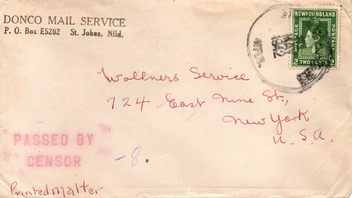 DONCO MAIL SERVICE
P. O. Box E5202 St. Johns, Nfld.
NEWFOUNDLAND
POSTAGE
POSTAGE
2 TWO CENTS 2
Wollners Service
724 East Nine St,
New York
U. S. A.
PASSED BY
CENSOR
-8.
Printed Matter